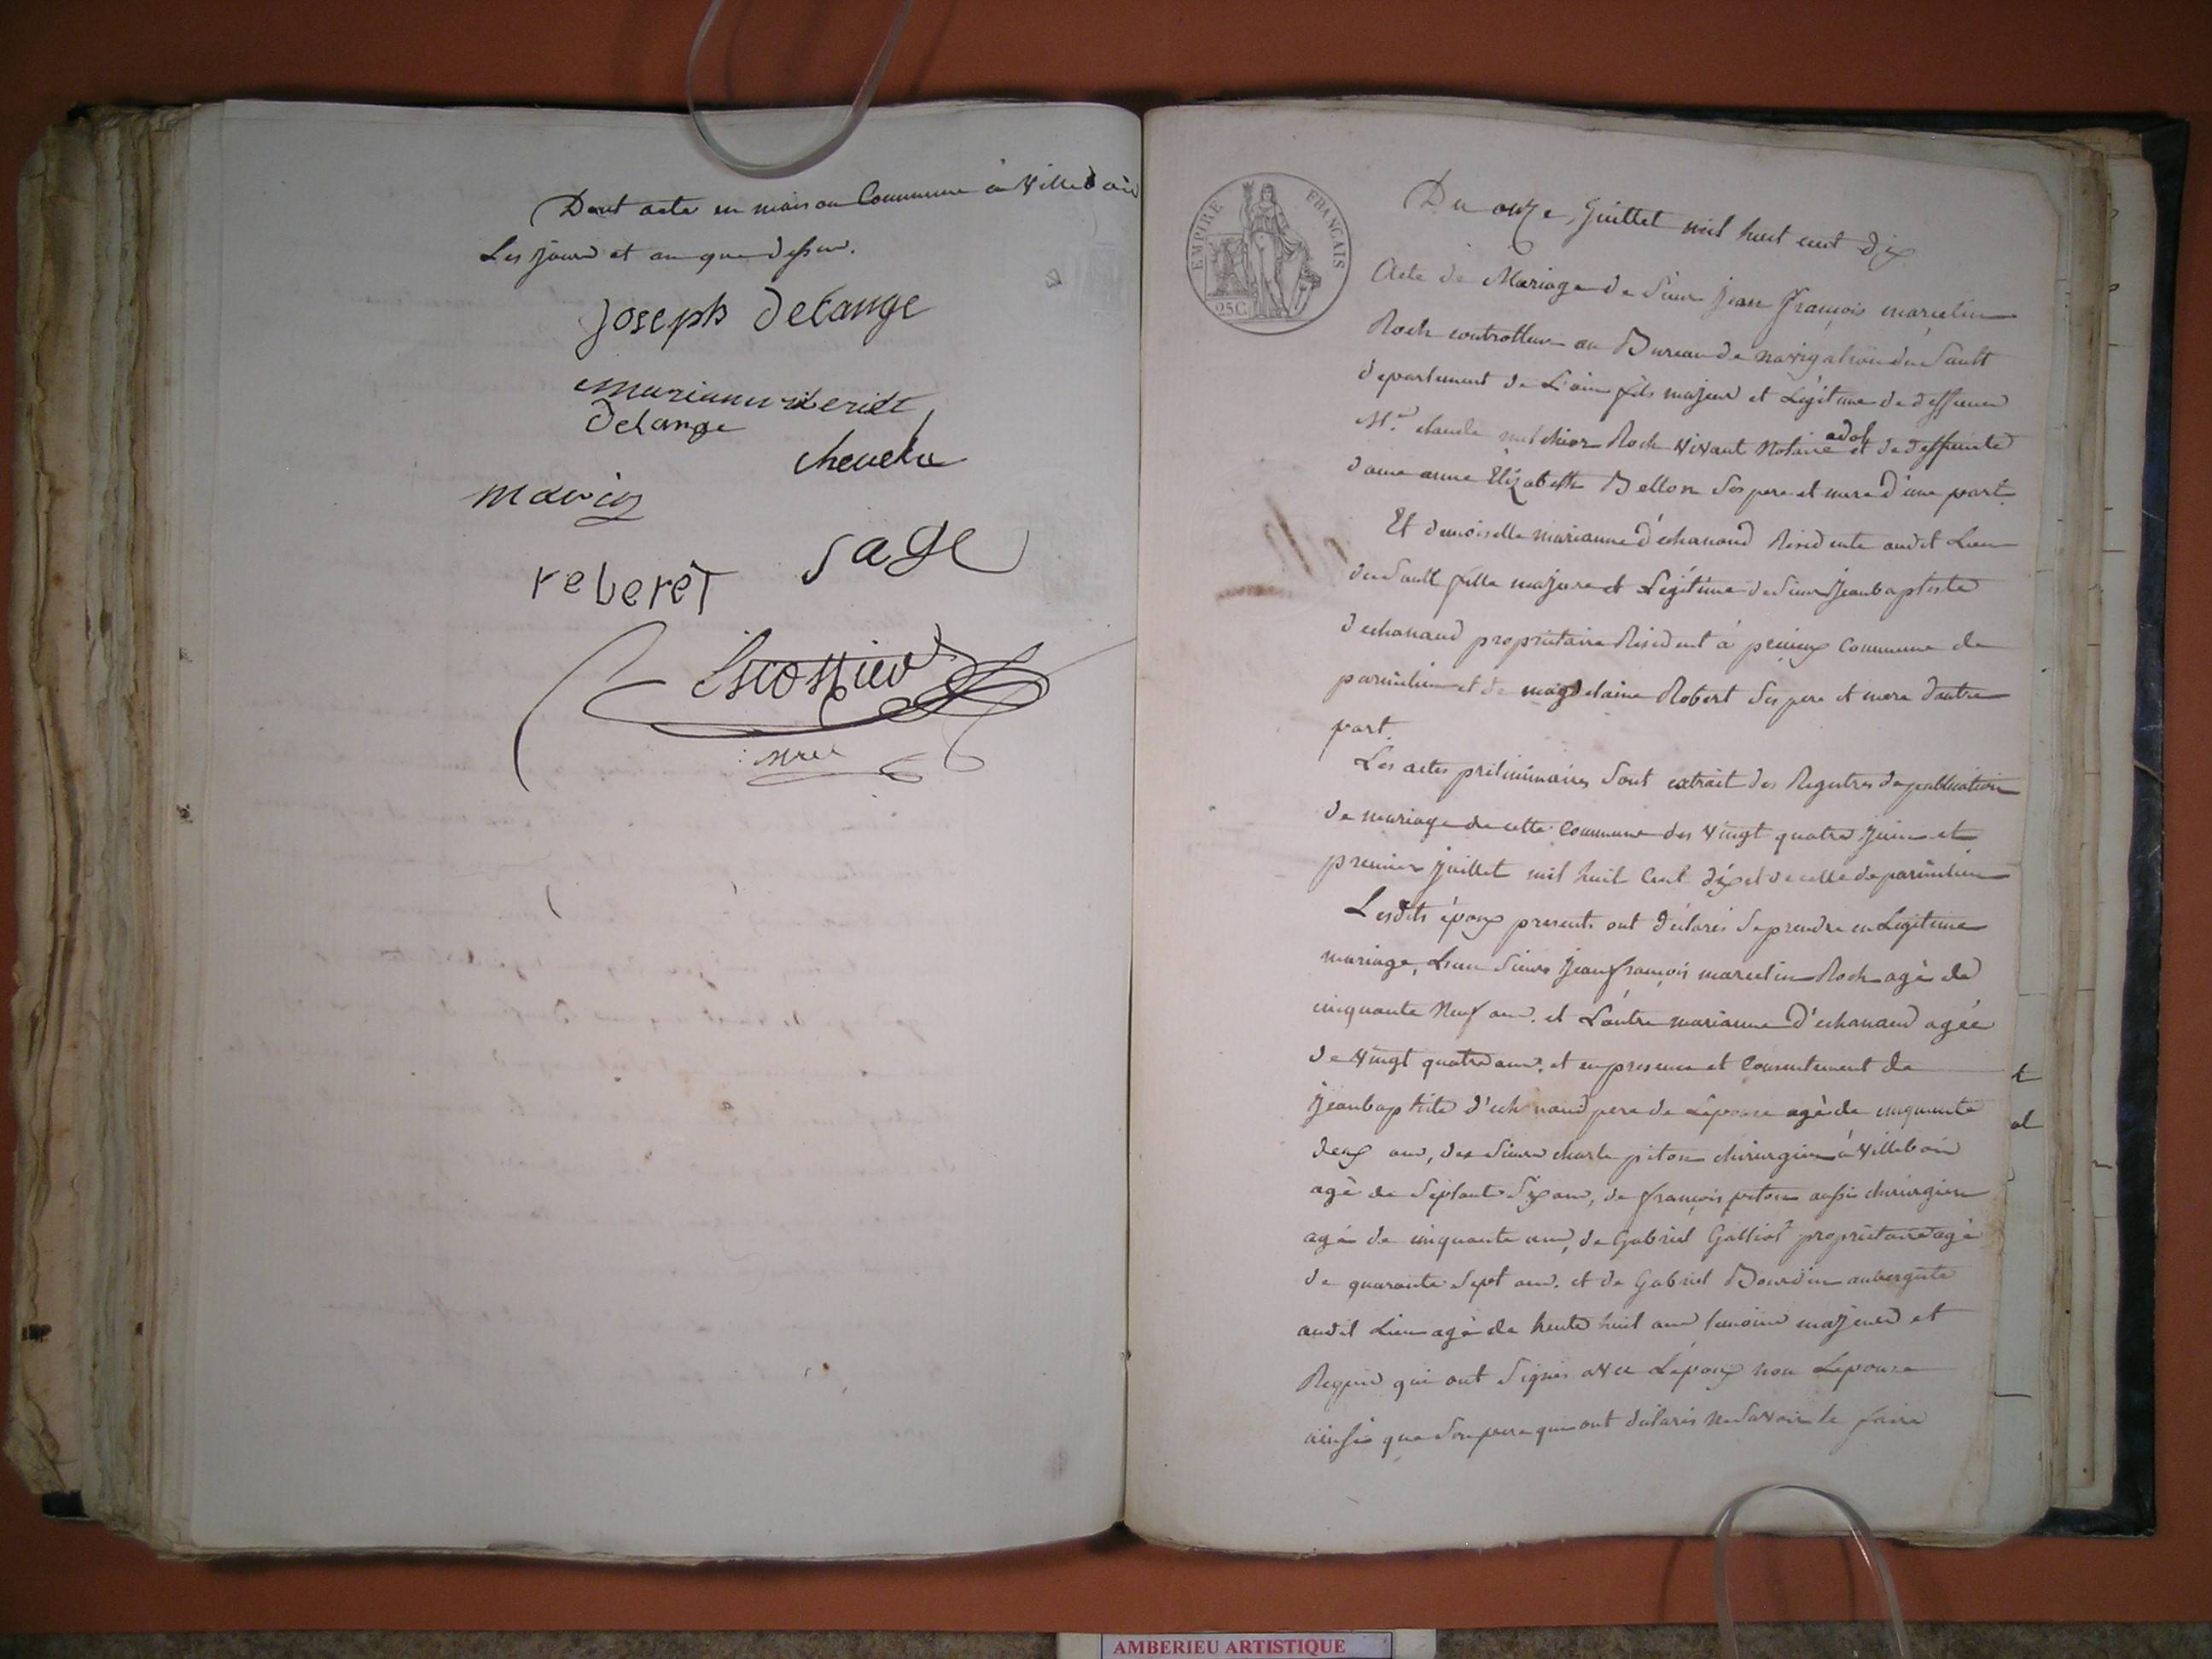 Dont acte en maison Commune à Villebois
Les jour et an que dessus.
joseph delange
delange
chevelu
reberet
sage
EMPIRE FRANCAIS
25C
Du onze Juillet mil huit cent dix
Acte de Mariage de Sieur jean françois marcelin
Roch controlleur au Bureau de navigation du Sault
departement de L'ain fils majeur et Légitime de deffunct
Mr. claude melchior Roch vivant Notaire et de deffuncte
dame anne Elizabeth Bellon Ses pere et mere d'une part
Et demoiselle marianne d'echanaud Residente audit Lieu
du Sault fille majeure et Légitime de Sieur jean baptiste
dechanaud proprietaire Resident à Commune de
et de magdelaine Robert Ses pere et mere d'autre
part.
Les actes préliminaires Sont extrait des Registres de publication
de mariage de cette Commune des Vingt quatre juin et
premier juillet mil huit Cent dix et de celle de
Lesdits époux presents ont déclarés Se prendre en Legitime
mariage, L'un Sieur jean françois marcelin Roch agé de
cinquante Neuf ans. et L'autre marianne D'echanaud agée
de Vingt quatre ans, et en presence et Consentement de
jean baptiste d'echanaud pere de L'epouse agé de cinquante
deux ans, des Sieurs charle piton chirurgien à Villebois
agé de Septante Six ans, de françois piton aussi chirurgien
agé de cinquante ans, de Gabriel Galliot proprietaire agé
de quarante Sept ans. et de Gabriel Bourdin aubergiste
audit Lieu agé de trente huit ans temoins majeurs et
Requis qui ont Signés avec L'époux non L'epouse
ainsi que Son pere qui ont déclarés ne Savoir le faire
AMBERIEU ARTISTIQUE